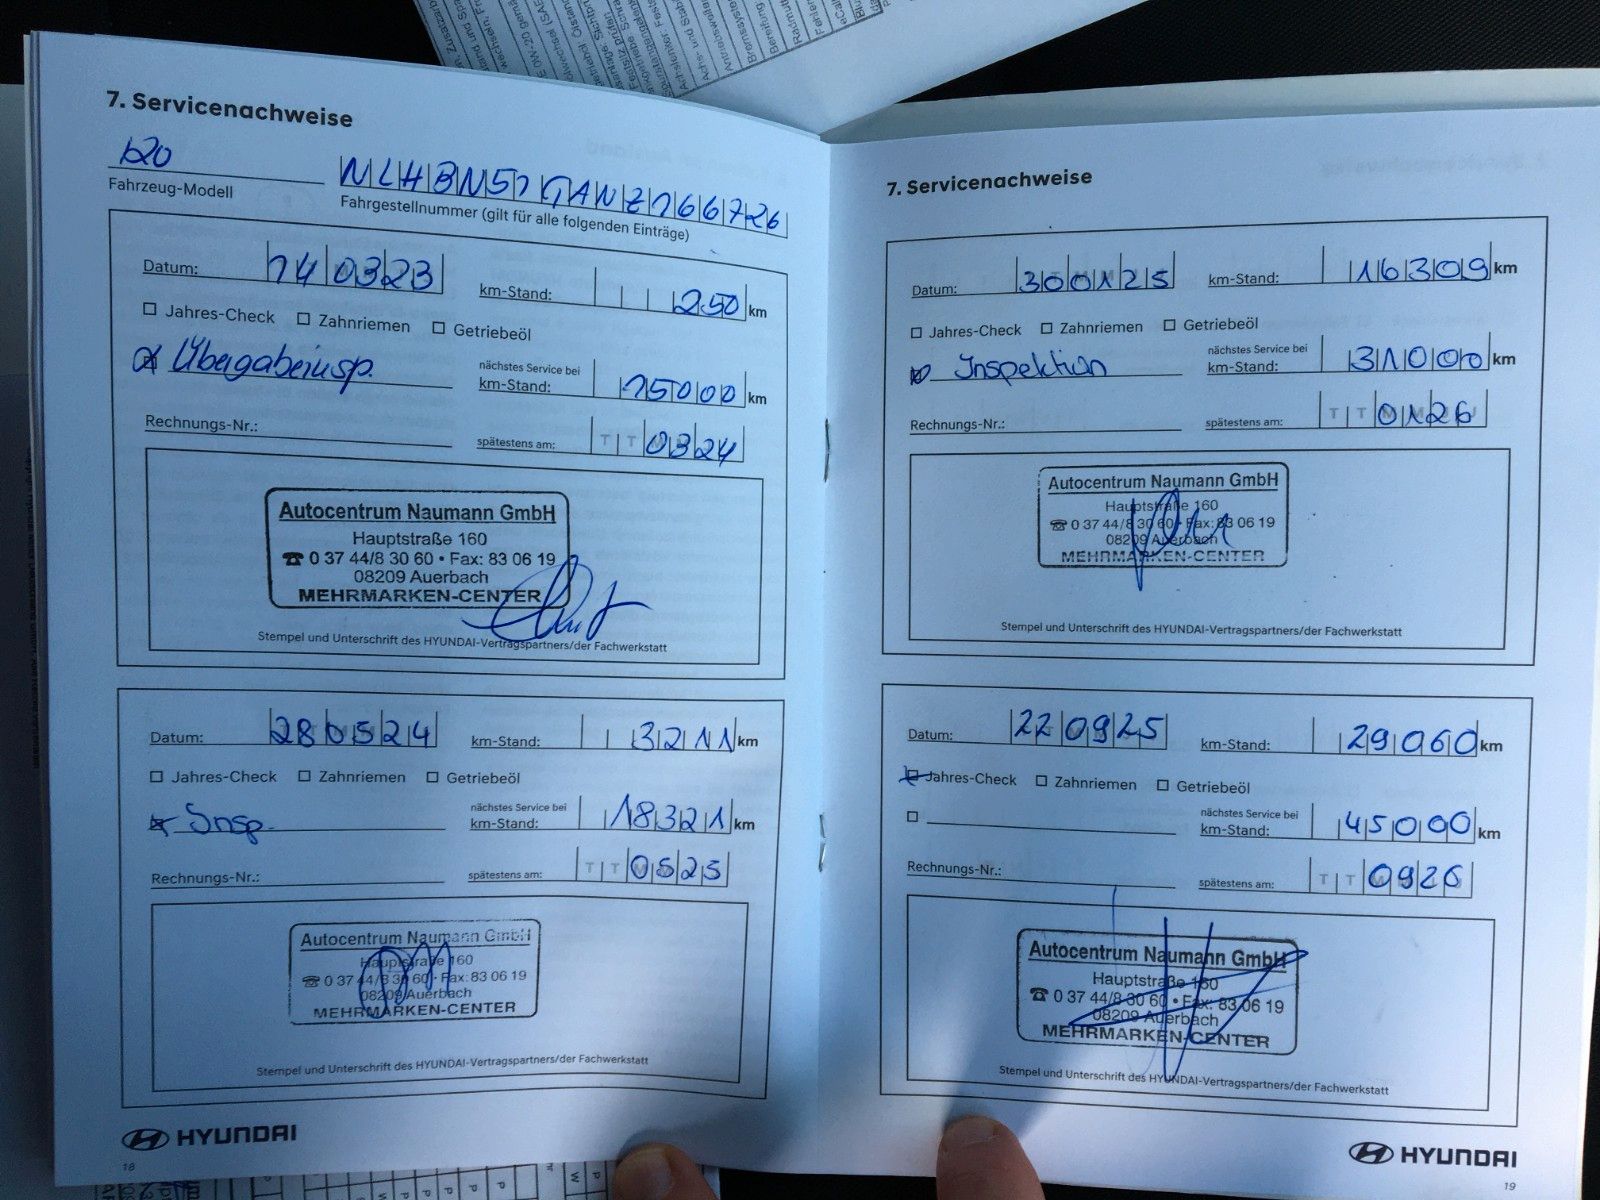 7. Servicenachweise
i20
NLHBN51GANZ166726
Fahrzeug-Modell
Fahrgestellnummer (gilt für alle folgenden Einträge)
Datum: 140323 km-Stand: 250 km
Jahres-Check Zahnriemen Getriebeöl
Übergabeinsp. nächstes Service bei km-Stand: 15000 km
Rechnungs-Nr.: spätestens am: TT 0324
Autocentrum Naumann GmbH
Hauptstraße 160
☎ 0 37 44/8 30 60 • Fax: 83 06 19
08209 Auerbach
MEHRMARKEN-CENTER
Stempel und Unterschrift des HYUNDAI-Vertragspartners/der Fachwerkstatt
Datum: 280524 km-Stand: 3211 km
Jahres-Check Zahnriemen Getriebeöl
Insp. nächstes Service bei km-Stand: 18321 km
Rechnungs-Nr.: spätestens am: TT 0525
Autocentrum Naumann GmbH
Hauptstraße 160
☎ 0 37 44/8 30 60 • Fax: 83 06 19
08209 Auerbach
MEHRMARKEN-CENTER
Stempel und Unterschrift des HYUNDAI-Vertragspartners/der Fachwerkstatt
HYUNDAI
18
7. Servicenachweise
Datum: 300125 km-Stand: 16309 km
Jahres-Check Zahnriemen Getriebeöl
Inspektion nächstes Service bei km-Stand: 31000 km
Rechnungs-Nr.: spätestens am: TT 0126
Autocentrum Naumann GmbH
Hauptstraße 160
☎ 0 37 44/8 30 60 • Fax: 83 06 19
08209 Auerbach
MEHRMARKEN-CENTER
Stempel und Unterschrift des HYUNDAI-Vertragspartners/der Fachwerkstatt
Datum: 220925 km-Stand: 29060 km
Jahres-Check Zahnriemen Getriebeöl
nächstes Service bei km-Stand: 45000 km
Rechnungs-Nr.: spätestens am: TT 0926
Autocentrum Naumann GmbH
Hauptstraße 160
☎ 0 37 44/8 30 60 • Fax: 83 06 19
08209 Auerbach
MEHRMARKEN-CENTER
Stempel und Unterschrift des HYUNDAI-Vertragspartners/der Fachwerkstatt
HYUNDAI
19